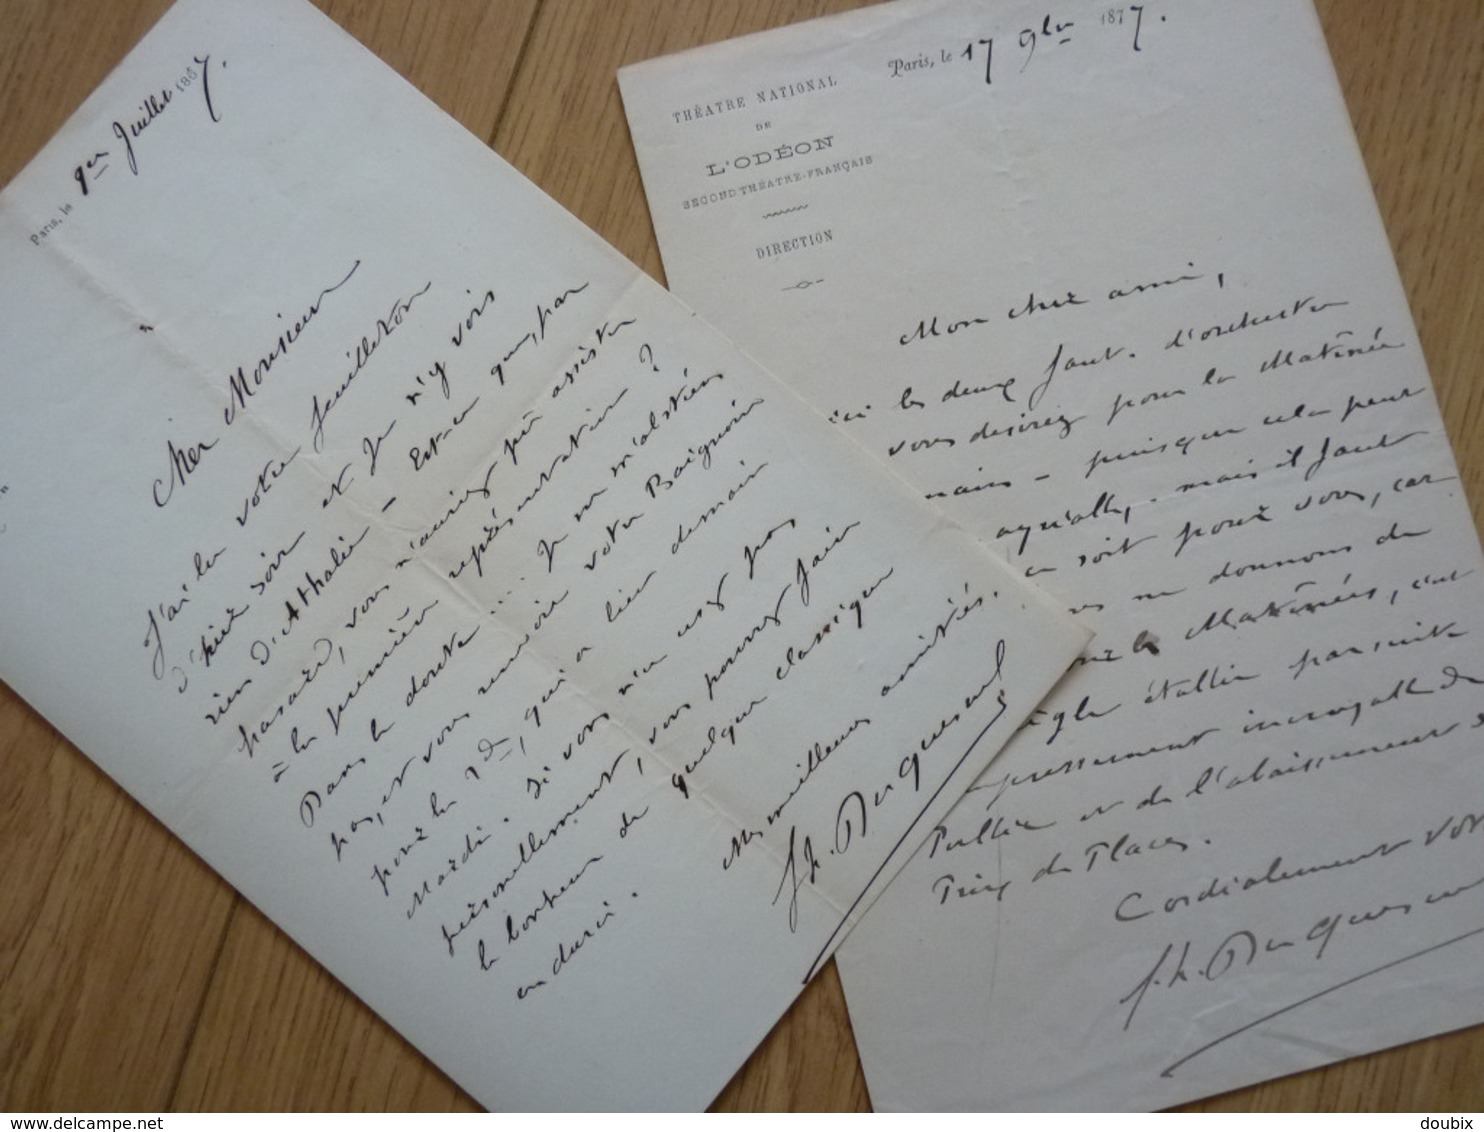 Paris, le 1er Juillet 1867.
Cher Monsieur
J'ai lu votre feuilleton
d'hier soir et je n'y vois
rien d'Athalie - Est-ce que, par
hasard, vous n'auriez pu assister
à la première représentation ?
Dans le doute ... je ne m'abstiens
pas, et vous envoie votre Baignoire
pour la 2de, qui a lieu demain
Mardi. Si vous n'en usez pas
personnellement, vous pourrez faire
le bonheur de quelque classique
endurci.
Mes meilleures amitiés.
F. h. Duquesnel
THÉATRE NATIONAL
DE
L'ODÉON
SECOND THÉATRE-FRANÇAIS
DIRECTION
Paris, le 17 9bre 1877.
Mon cher ami,
les deux faut. d'orchestre
vous desirez pour la Matinée
- puisque cela peut
agréable, - mais il faut
soit pour vous, car
ne donnons de
les Matinées, c'est
établie par suite
incroyable du
Public et de l'abaissement
Prix des Places.
Cordialement
F. h. Duquesnel
delcampe.net
doubix